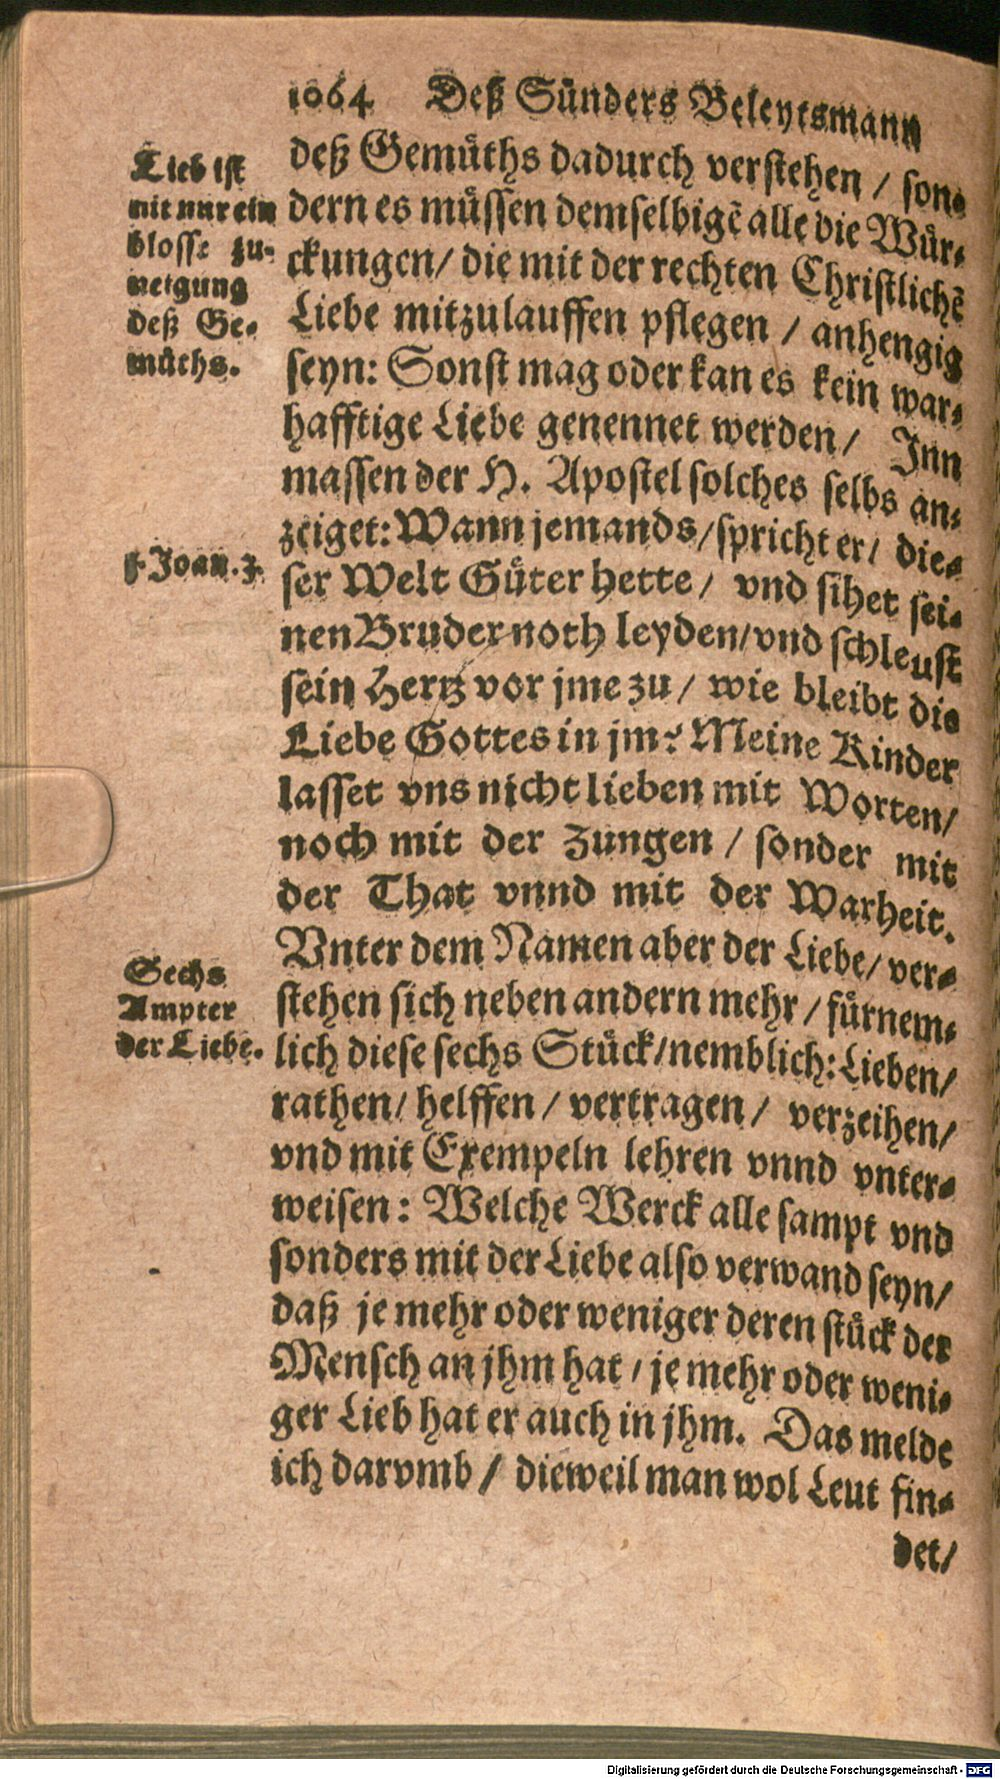 1064 Deß Sünders Beleytsmann
Lieb ist
nit nur ein
blosse zu-
neigung
deß Ge-
müths.
deß Gemüths dadurch verstehen / son-
dern es müssen demselbigẽ alle die Wür-
ckungen / die mit der rechten Christlichẽ
Liebe mitzulauffen pflegen / anhengig
seyn: Sonst mag oder kan es kein war-
hafftige Liebe genennet werden / Inn
massen der H. Apostel solches selbs an-
zeiget: Wann jemands / spricht er / die-
1. Joan. 3.
ser Welt Güter hette / vnd sihet sei-
nen Bruder noth leyden / vnd schleust
sein Hertz vor jme zu / wie bleibt die
Liebe Gottes in jm? Meine Kinder
lasset vns nicht lieben mit Worten /
noch mit der Zungen / sonder mit
der That vnnd mit der Warheit.
Sechs
Ampter
der Liebe.
Vnter dem Namen aber der Liebe / ver-
stehen sich neben andern mehr / fürnem-
lich diese sechs Stück / nemblich: Lieben /
rathen / helffen / vertragen / verzeihen /
vnd mit Exempeln lehren vnnd vnter-
weisen: Welche Werck alle sampt vnd
sonders mit der Liebe also verwand seyn /
daß je mehr oder weniger deren stück der
Mensch an jhm hat / je mehr oder weni-
ger Lieb hat er auch in jhm. Das melde
ich darvmb / dieweil man wol Leut fin-
det /
Digitalisierung gefördert durch die Deutsche Forschungsgemeinschaft - DFG